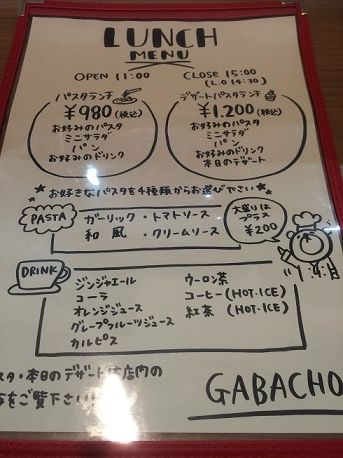 LUNCH
MENU
OPEN 11:00 CLOSE 15:00
(L.O 14:30)
パスタランチ
¥980(税込)
お好みのパスタ
ミニサラダ
パン
お好みのドリンク
デザートパスタランチ
¥1.200(税込)
お好みのパスタ
ミニサラダ
パン
お好みのドリンク
本日のデザート
★お好きなパスタを4種類からお選び下さい★
PASTA
ガーリック・トマトソース
和風・クリームソース
大盛りはプラス
¥200
DRINK
ジンジャエール
コーラ
オレンジジュース
グレープフルーツジュース
カルピス
ウーロン茶
コーヒー(HOT・ICE)
紅茶(HOT・ICE)
スタ・本日のデザートは店内の
をご覧下さい
GABACHO